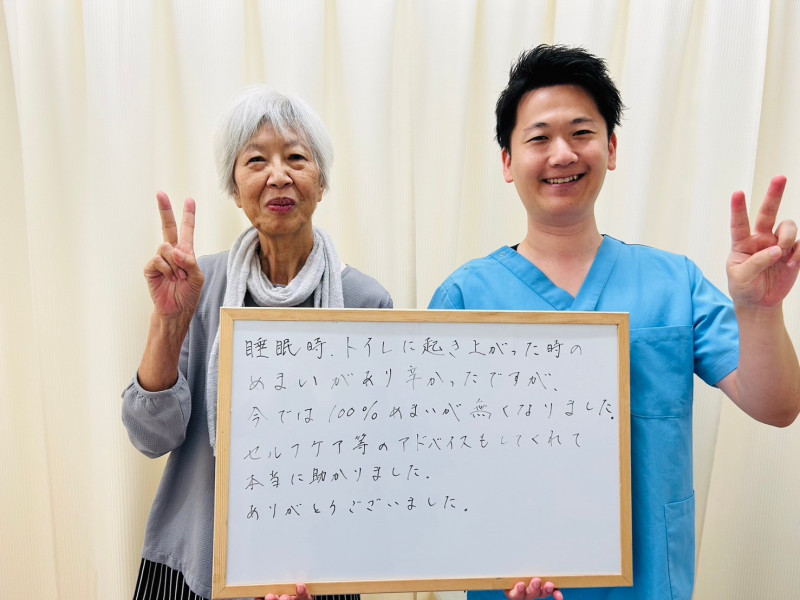 睡眠時、トイレに起き上がった時の
めまいがあり辛かったですが、
今では100%めまいが無くなりました。
セルフケア等のアドバイスもしてくれて
本当に助かりました。
ありがとうございました。